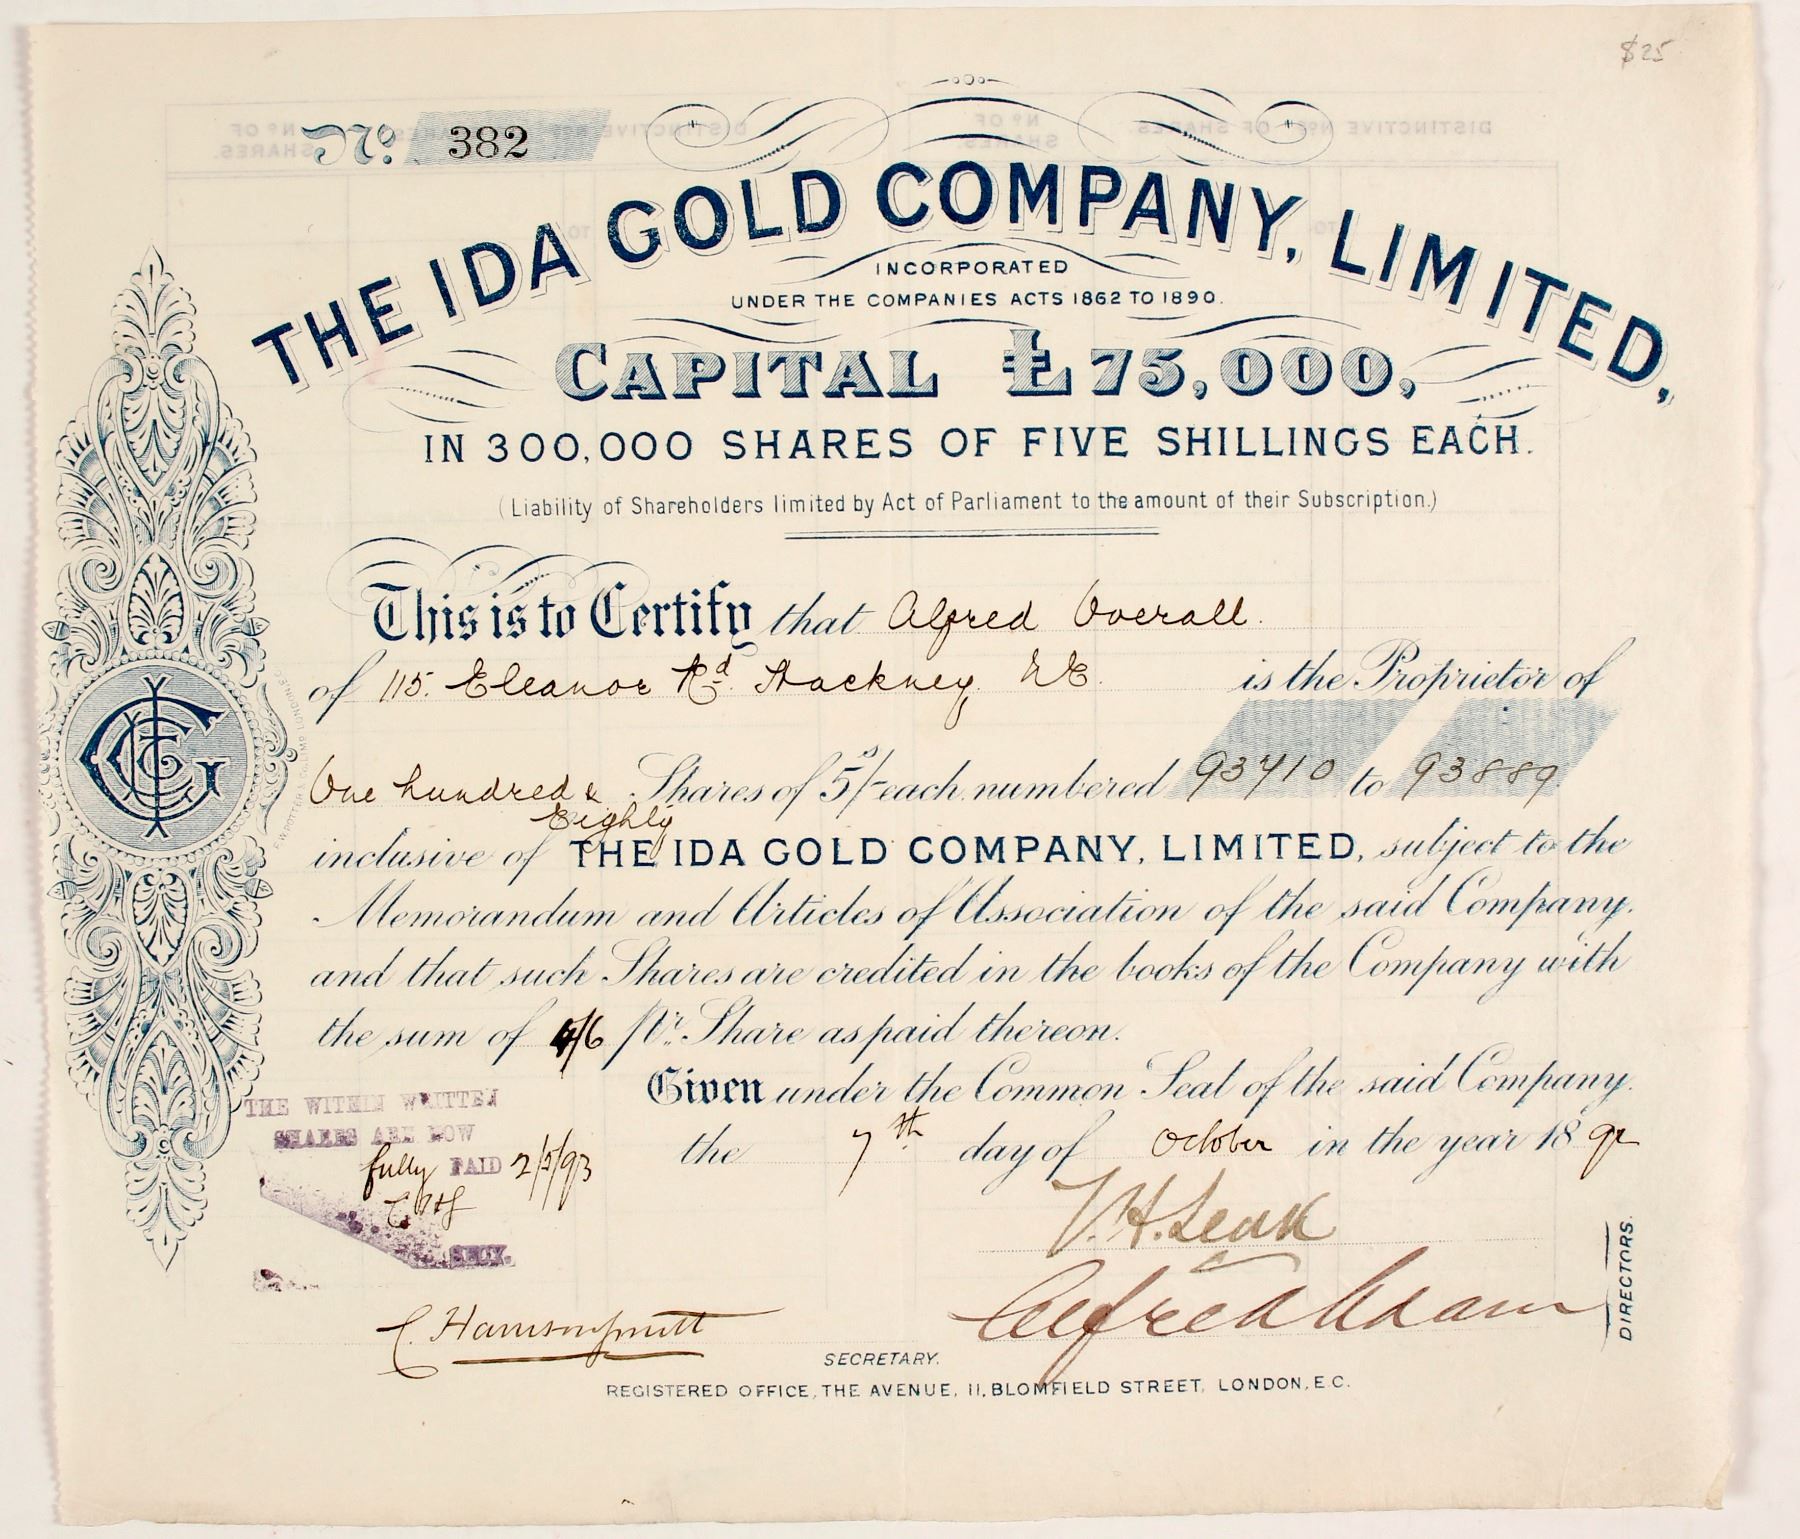 $25
No. 382
THE IDA GOLD COMPANY, LIMITED,
INCORPORATED
UNDER THE COMPANIES ACTS 1862 TO 1890.
CAPITAL £75,000,
IN 300,000 SHARES OF FIVE SHILLINGS EACH.
(Liability of Shareholders limited by Act of Parliament to the amount of their Subscription.)
This is to Certify that Alfred Overall.
of 115. Eleanor Rd. Hackney, NE. is the Proprietor of
One hundred & Eighty Shares of 5s/- each numbered 93710 to 93889
inclusive of THE IDA GOLD COMPANY, LIMITED, subject to the
Memorandum and Articles of Association of the said Company.
and that such Shares are credited in the books of the Company with
the sum of 4/6 pr. Share as paid thereon.
Given under the Common Seal of the said Company.
the 7th day of October in the year 1892
THE WITHIN WRITTEN
SHARES ARE NOW
fully PAID 2/5/93
SECY.
V. H. Leak
Alfred Adam
DIRECTORS.
C. Harrison Smith
SECRETARY.
REGISTERED OFFICE, THE AVENUE, 11, BLOMFIELD STREET, LONDON, E.C.